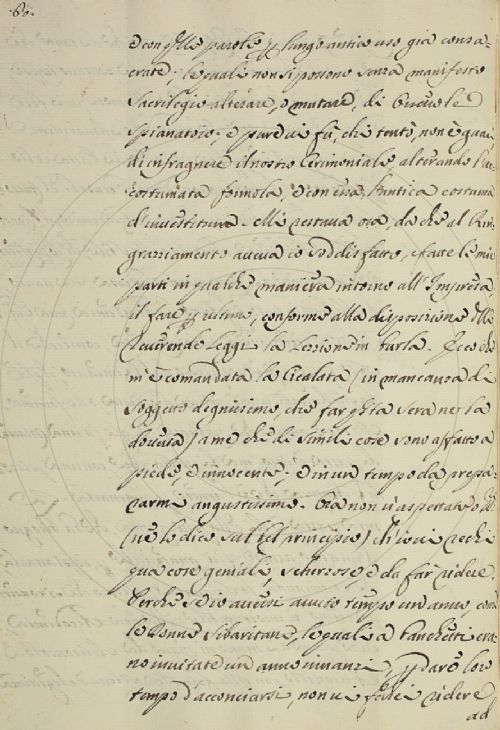 80.
e con q̃lle parole p̱ lungo antico uso già consa-
crate; le quali non si possono senza manifesto
sacrilegio alterare, o mutare, di
spianatoio; e pure vi fù, chi tentò, non è guari
di infragnere il nostro Cerimoniale alterando l'ac-
costumata formola, e con essa l'antica costuma
d'investitura. Mi restava ora, da che al Rin-
graziamento aveva io soddisfatto, e fatte le mie
parti in qualche maniera intorno all'Impresa
il fare p̱ ultimo, conforme alla disposizione d̃lle
Reverende Leggi la Lezzione in burla. Ecco che
m'è comandata la Cicalata (in mancanza di
soggetto degnissimo, che far q̃sta sera ne la
doveva) a me che di simili cose sono affatto a
piede, e innocente; e in un tempo da prepa-
rarmi angustissimo. Ora non v'aspettate o
(ve lo dico sul bel principio) ch'io vi rechi
quà cose geniali, scherzose, e da far ridere.
Perche s'io avessi avuto tempo un anno, come
le Donne Sibaritane, le quali a' banchetti era-
no invitate un anno innanzi, p̱ dare loro
tempo d'acconciarsi, non vi farei ridere
ad